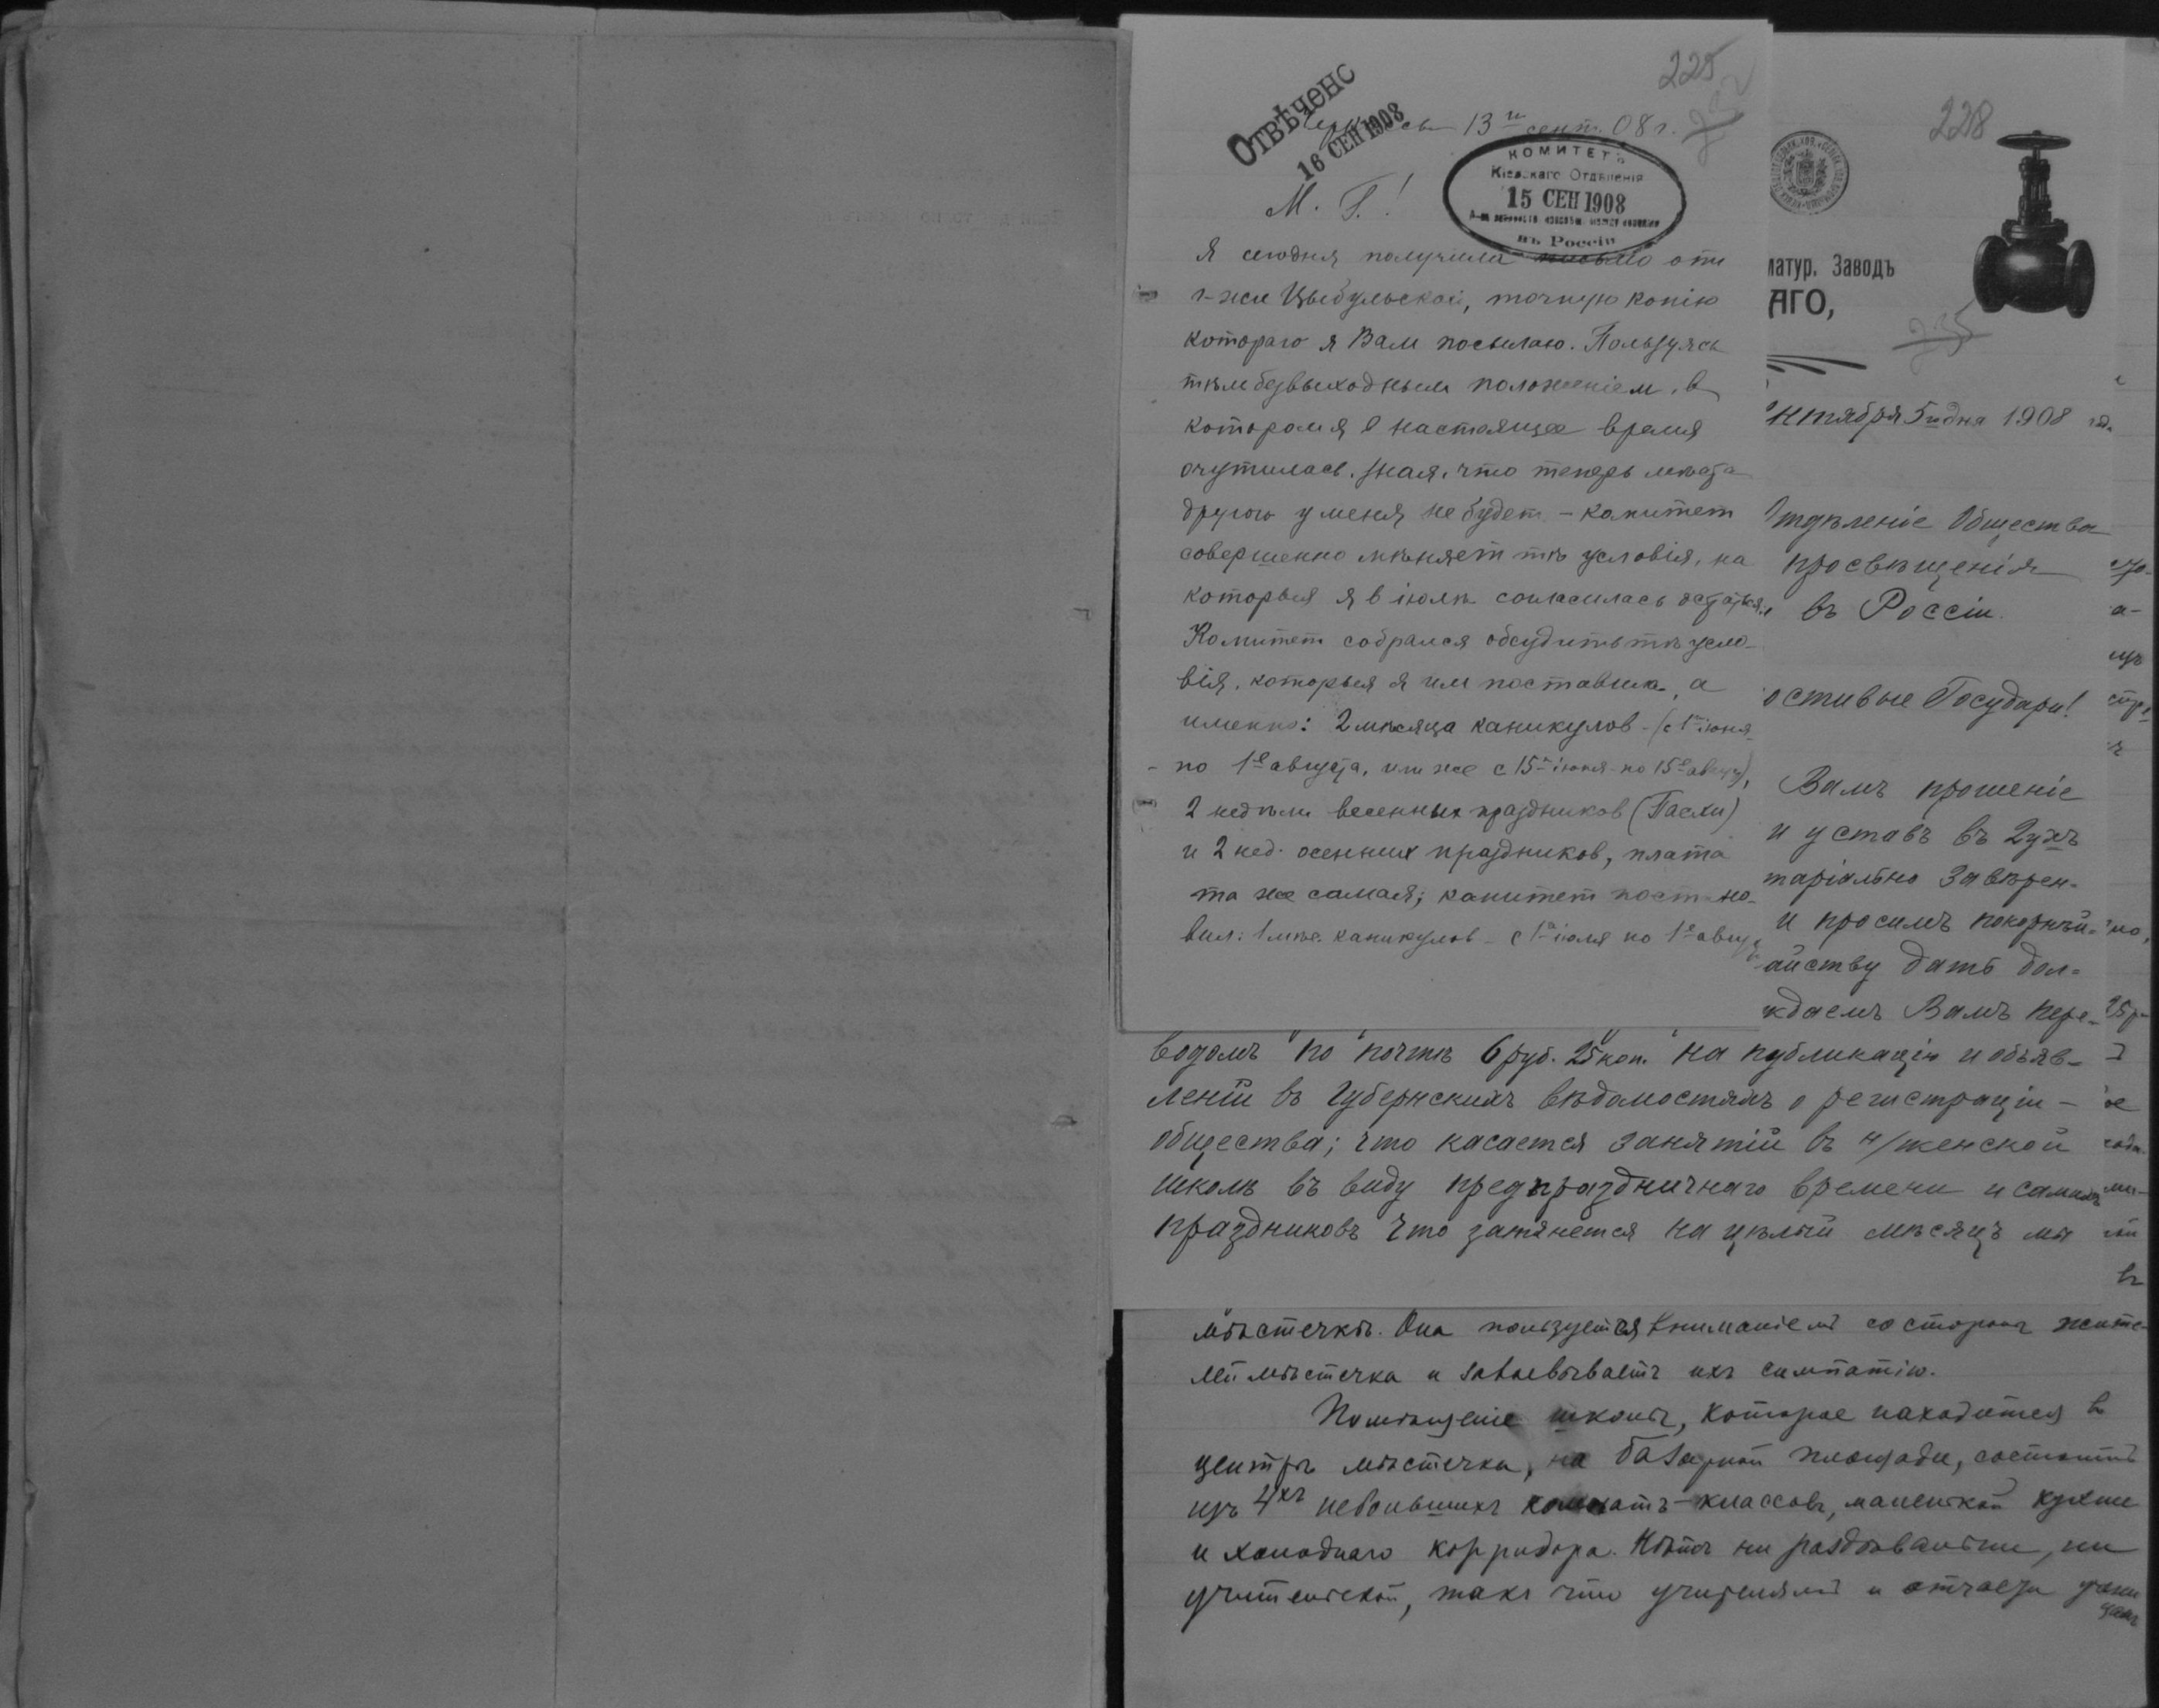 225
ОТВѢЧЕНО
16 СЕН 1908
13го сент. 08 г.
КОМИТЕТЪ
Кіевскаго Отдѣленія
15 СЕН 1908
въ Россіи
М. Г.!
Я сегодня получила письмо отъ
г-жи Цыбульской, точную копію
котораго я Вам посылаю. Пользуясь
тѣм безвыходным положеніем, в
котором я в настоящее время
очутилась, зная, что теперь мѣста
другого у меня не будет – комитет
совершенно мѣняет тѣ условія, на
которыя я в іюлѣ согласилась остаться.
Комитет собрался обсудить тѣ усло-
вія, которыя я им поставила, а
именно: 2 мѣсяца каникулов – (с 1го іюня
по 1е августа, или же с 15го іюня по 15е август),
2 недѣли весенных праздников (Пасхи)
и 2 нед. осенних праздников, плата
та же самая; комитет постано-
вил: 1 мѣс. каникулов – с 1го іюля по 1е август
228
матур. Заводъ
АГО,
235
нтября 5го дня 1908 год.
Отдѣленіе Общества
просвѣщенія
въ Россіи.
остивые Государи!
Вамъ прошеніе
и уставъ въ 2ухъ
таріально завѣрен-
и просимъ покорнѣй-
айству дать дол-
ждаемъ Вамъ пере-
водомъ по почтѣ 6 руб. 25 коп. на публикацію и объяв-
леній въ Губернскихъ вѣдомостяхъ о регистраціи –
общества; что касается занятій въ н/женской
школѣ въ виду предпраздничнаго времени и самихъ
праздниковъ что затянется на цѣлый мѣсяцъ мы
мѣстечкѣ. Она пользуется вниманіемъ со стороны жите-
лей мѣстечка и завоевываетъ ихъ симпатію.
Помѣщеніе школы, которое находится в
центрѣ мѣстечка, на базарной площади, состоитъ
изъ 4хъ небольшихъ комнатъ-классовъ, маленькой кухни
и холоднаго корридора. Нѣтъ ни раздѣвальни, ни
учительской, такъ что учителямъ и отчасти